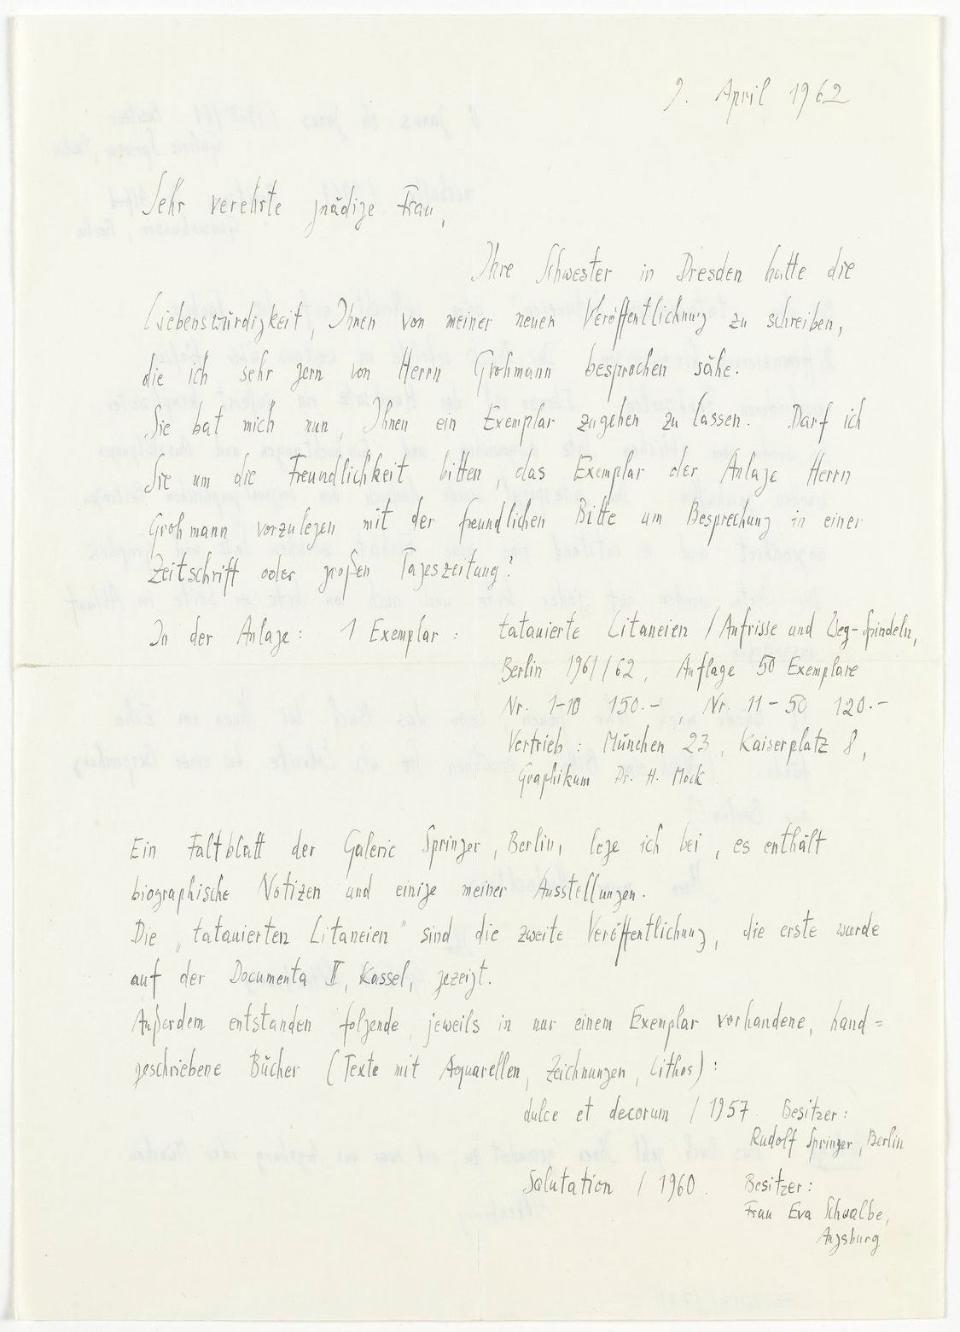 9. April 1962
Sehr verehrte gnädige Frau,
Ihre Schwester in Dresden hatte die
Liebenswürdigkeit, Ihnen von meiner neuen Veröffentlichung zu schreiben,
die ich sehr gern von Herrn Grohmann besprochen sähe.
Sie bat mich nun, Ihnen ein Exemplar zugehen zu lassen. Darf ich
Sie um die Freundlichkeit bitten, das Exemplar der Anlage Herrn
Grohmann vorzulegen mit der freundlichen Bitte um Besprechung in einer
Zeitschrift oder großen Tageszeitung?
In der Anlage: 1 Exemplar: tatauierte Litaneien / Aufrisse und Weg-spindeln,
Berlin 1961/62, Auflage 50 Exemplare
Nr. 1-10 150.-, Nr. 11-50 120.-
Vertrieb: München 23, Kaiserplatz 8,
Graphikum Dr. H. Mock
Ein Faltblatt der Galerie Springer, Berlin, lege ich bei, es enthält
biographische Notizen und einige meiner Ausstellungen.
Die "tatauierten Litaneien" sind die zweite Veröffentlichung, die erste wurde
auf der Documenta II, Kassel, gezeigt.
Außerdem entstanden folgende, jeweils in nur einem Exemplar vorhandene, hand=
geschriebene Bücher (Texte mit Aquarellen, Zeichnungen, Lithos):
dulce et decorum / 1957 Besitzer:
Rudolf Springer, Berlin
Salutation / 1960. Besitzer:
Frau Eva Schwalbe,
Augsburg